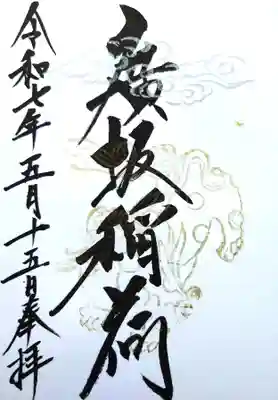 坂稲荷
令和七年五月十五日奉拝